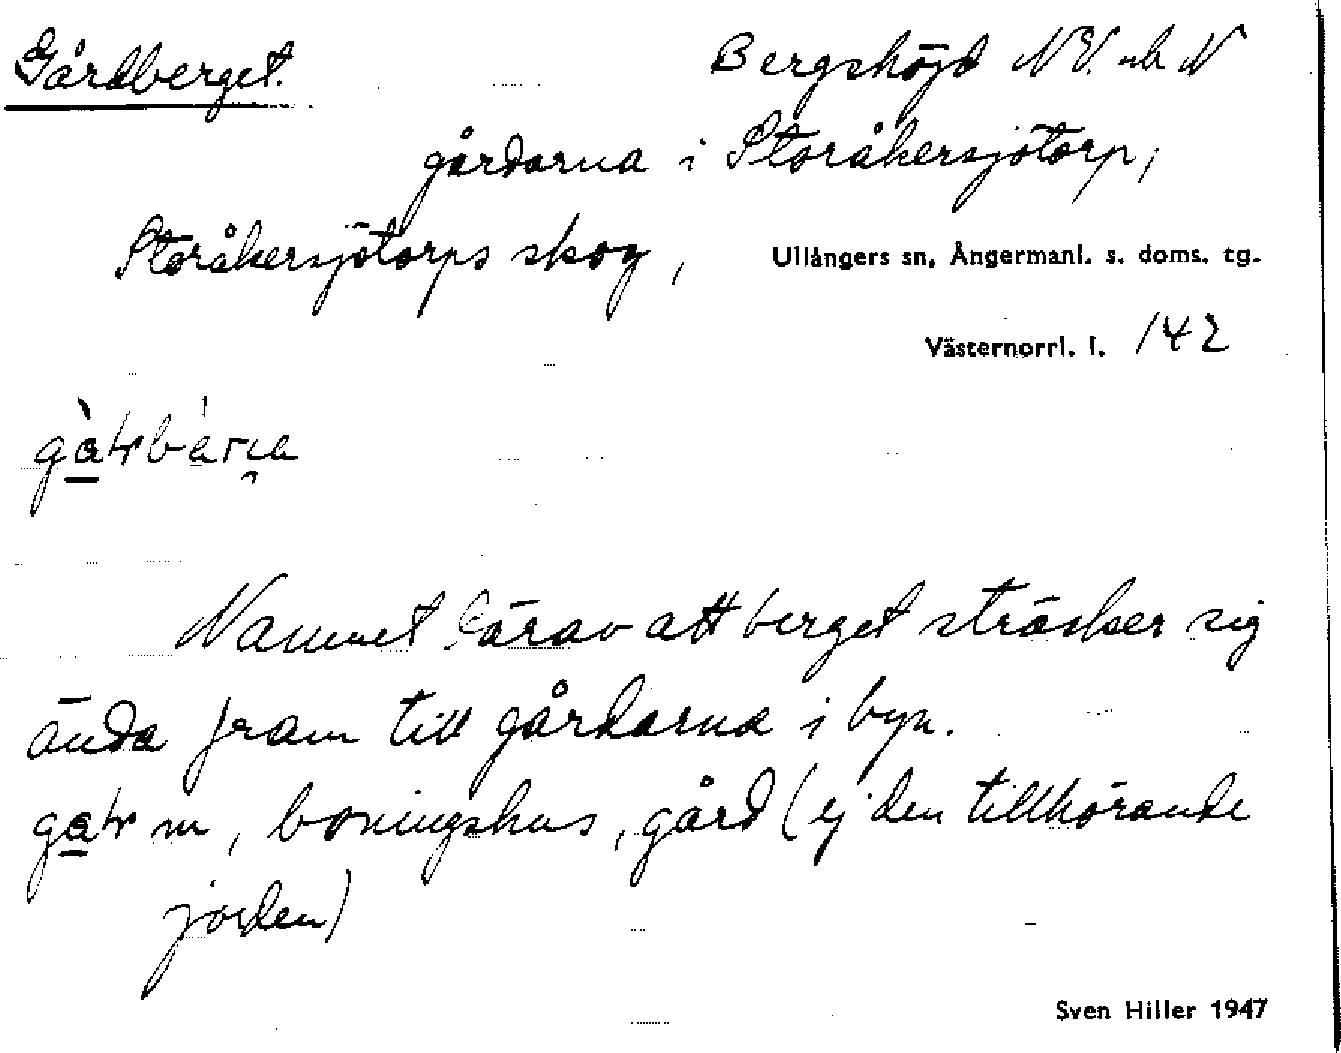 Gårdberget. Bergshöjd NV. och N
gårdarna i Storåkersjötorp,
Storåkersjötorps skog, Ullångers sn, Ångermanl. s. doms. tg.
Västernorrl. l. 142
Namnet därav att berget sträcker sig
ända fram till gårdarna i byn.
m, boningshus, gård (ej den tillhörande
jorden)
Sven Hiller 1947